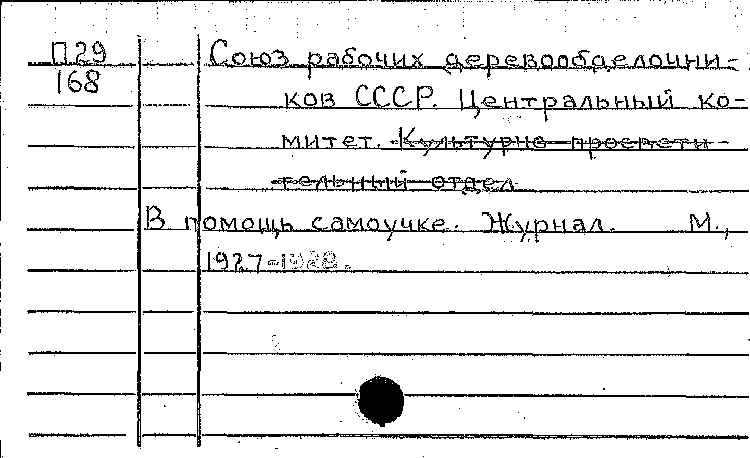 П29
168
Союз рабочих деревообделочни-
ков СССР. Центральный ко-
митет. Культурно-просвети-
тельный отдел
В помощь самоучке. Журнал. М.,
1927-1928.